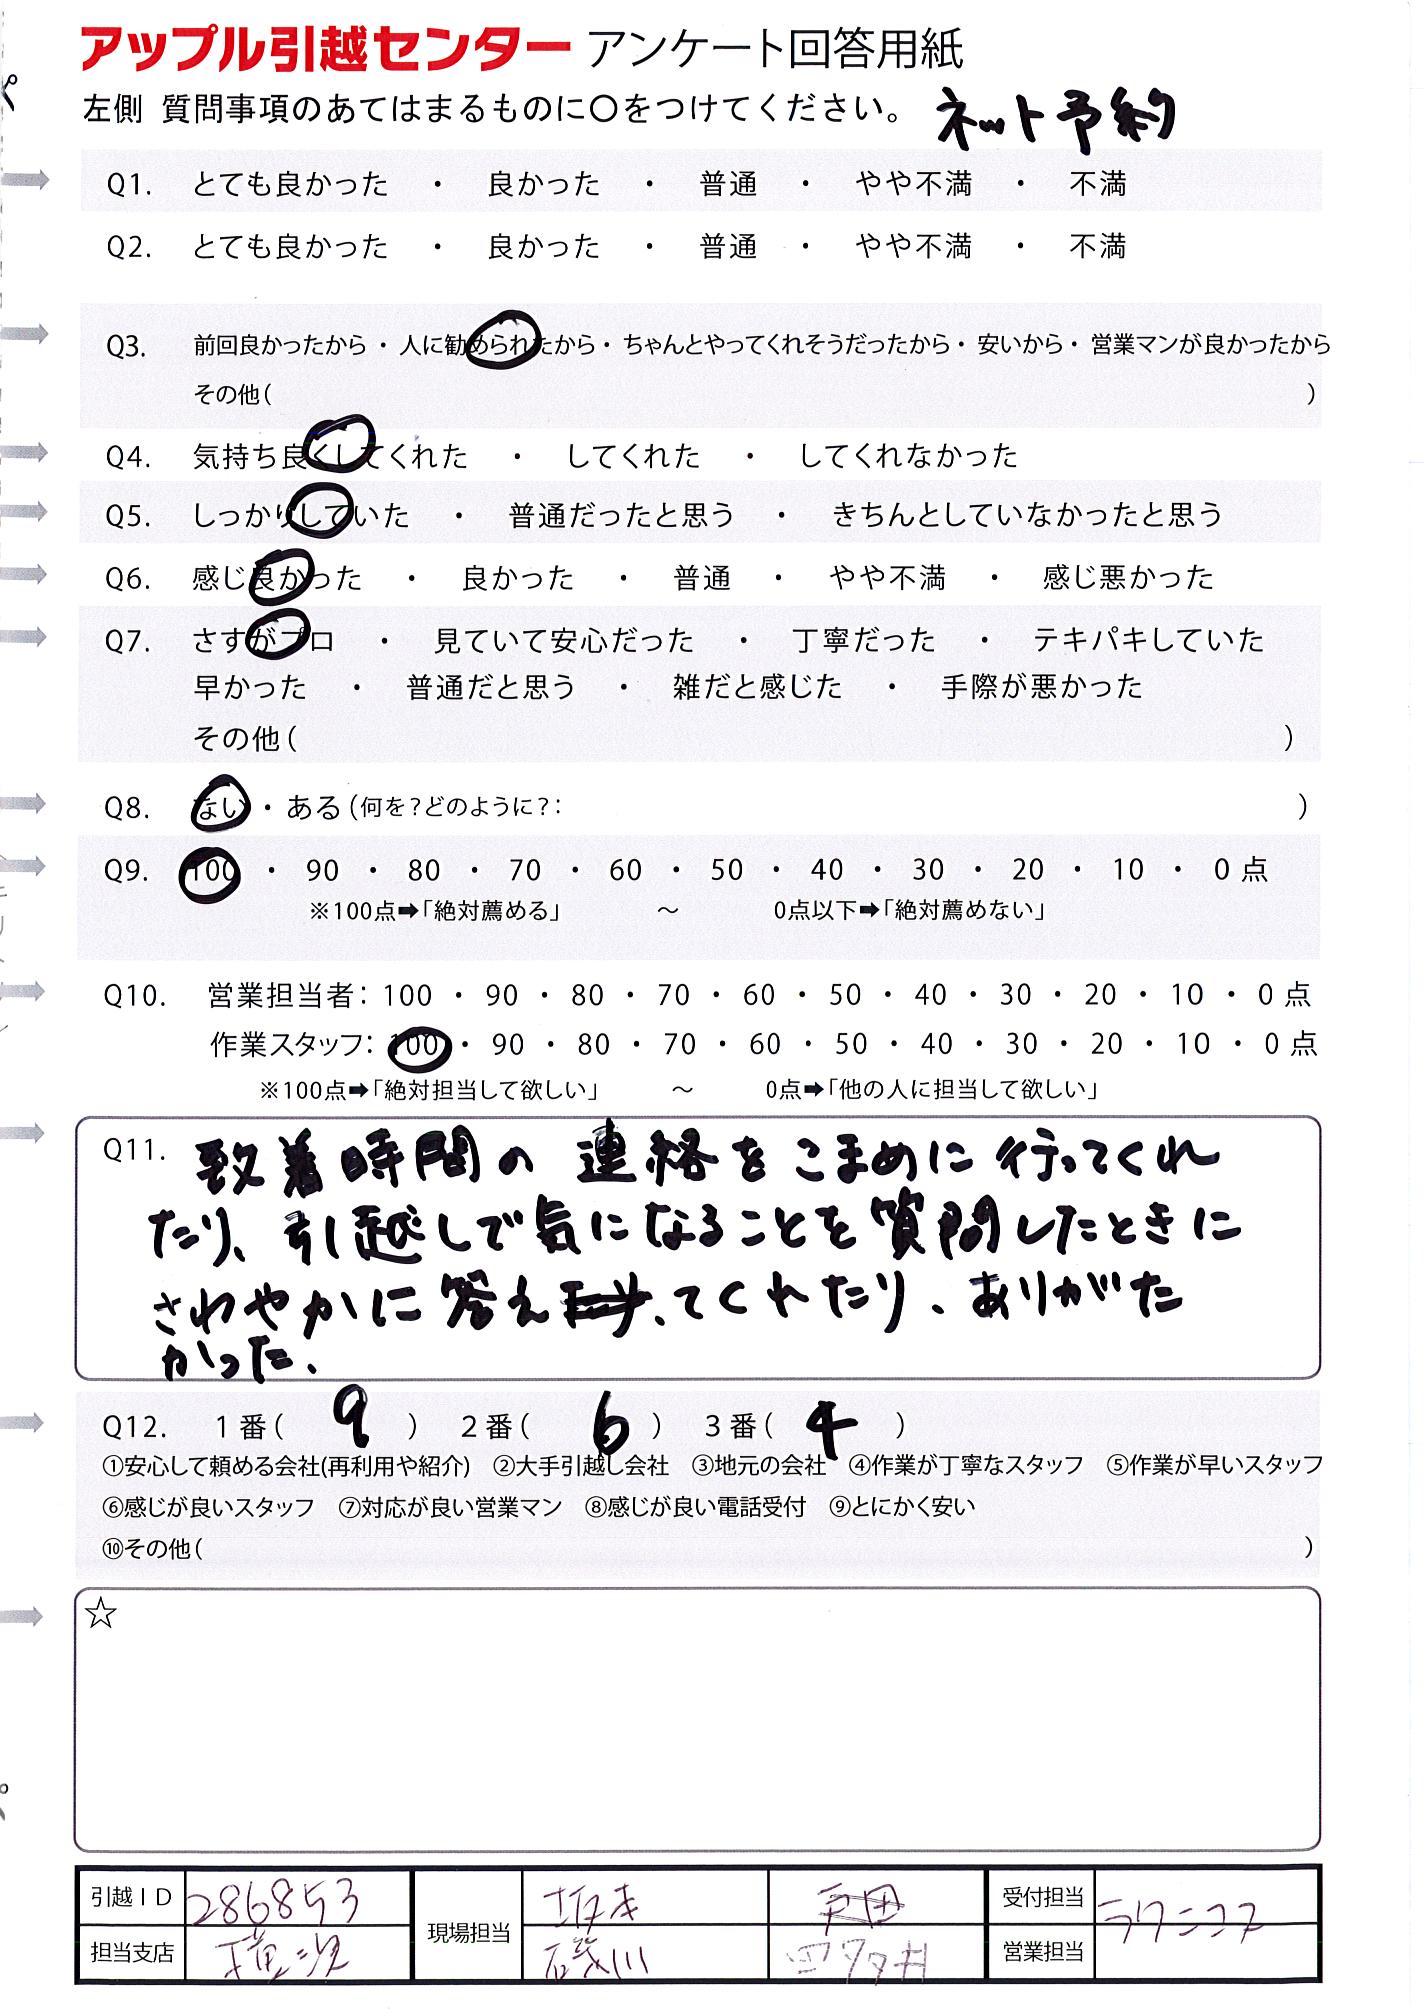 アップル引越センター アンケート回答用紙
左側 質問事項のあてはまるものに〇をつけてください。 ネット予約
Q1. とても良かった ・ 良かった ・ 普通 ・ やや不満 ・ 不満
Q2. とても良かった ・ 良かった ・ 普通 ・ やや不満 ・ 不満
Q3. 前回良かったから ・ 人に勧められたから ・ ちゃんとやってくれそうだったから ・ 安いから ・ 営業マンが良かったから
その他( )
Q4. 気持ち良くしてくれた ・ してくれた ・ してくれなかった
Q5. しっかりしていた ・ 普通だったと思う ・ きちんとしていなかったと思う
Q6. 感じ良かった ・ 良かった ・ 普通 ・ やや不満 ・ 感じ悪かった
Q7. さすがプロ ・ 見ていて安心だった ・ 丁寧だった ・ テキパキしていた
早かった ・ 普通だと思う ・ 雑だと感じた ・ 手際が悪かった
その他( )
Q8. ない ・ ある(何を?どのように?: )
Q9. 100 ・ 90 ・ 80 ・ 70 ・ 60 ・ 50 ・ 40 ・ 30 ・ 20 ・ 10 ・ 0 点
※100点➡「絶対薦める」 ～ 0点以下➡「絶対薦めない」
Q10. 営業担当者: 100 ・ 90 ・ 80 ・ 70 ・ 60 ・ 50 ・ 40 ・ 30 ・ 20 ・ 10 ・ 0 点
作業スタッフ: 100 ・ 90 ・ 80 ・ 70 ・ 60 ・ 50 ・ 40 ・ 30 ・ 20 ・ 10 ・ 0 点
※100点➡「絶対担当して欲しい」 ～ 0点➡「他の人に担当して欲しい」
Q11. 到着時間の連絡をこまめに行ってくれ
たり、引越しで気になることを質問したときに
さわやかに答えてくれたり、ありがた
かった.
Q12. 1番( 9 ) 2番( 6 ) 3番( 4 )
①安心して頼める会社(再利用や紹介) ②大手引越し会社 ③地元の会社 ④作業が丁寧なスタッフ ⑤作業が早いスタッフ
⑥感じが良いスタッフ ⑦対応が良い営業マン ⑧感じが良い電話受付 ⑨とにかく安い
⑩その他( )
☆
引越ID 286853 現場担当 坂本 戸田 受付担当 ラクニコス
担当支店 横浜 磯川 四タタ井 営業担当